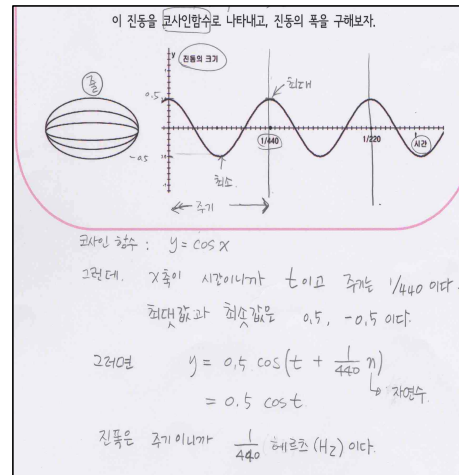 이 진동을 코사인함수로 나타내고, 진동의 폭을 구해보자.
y
진동의 크기
줄
0.5
최대
-0.5
1/440
1/220
t
시간
최소
주기
코사인 함수 : y = cos x
그런데. x축이 시간이니까 t이고 주기는 1/440 이다.
최댓값과 최솟값은 0.5, -0.5 이다.
그러면 y = 0.5 cos(t + 1/440 n)
자연수.
= 0.5 cos t.
진폭은 주기이니까 1/440 헤르츠(Hz) 이다.